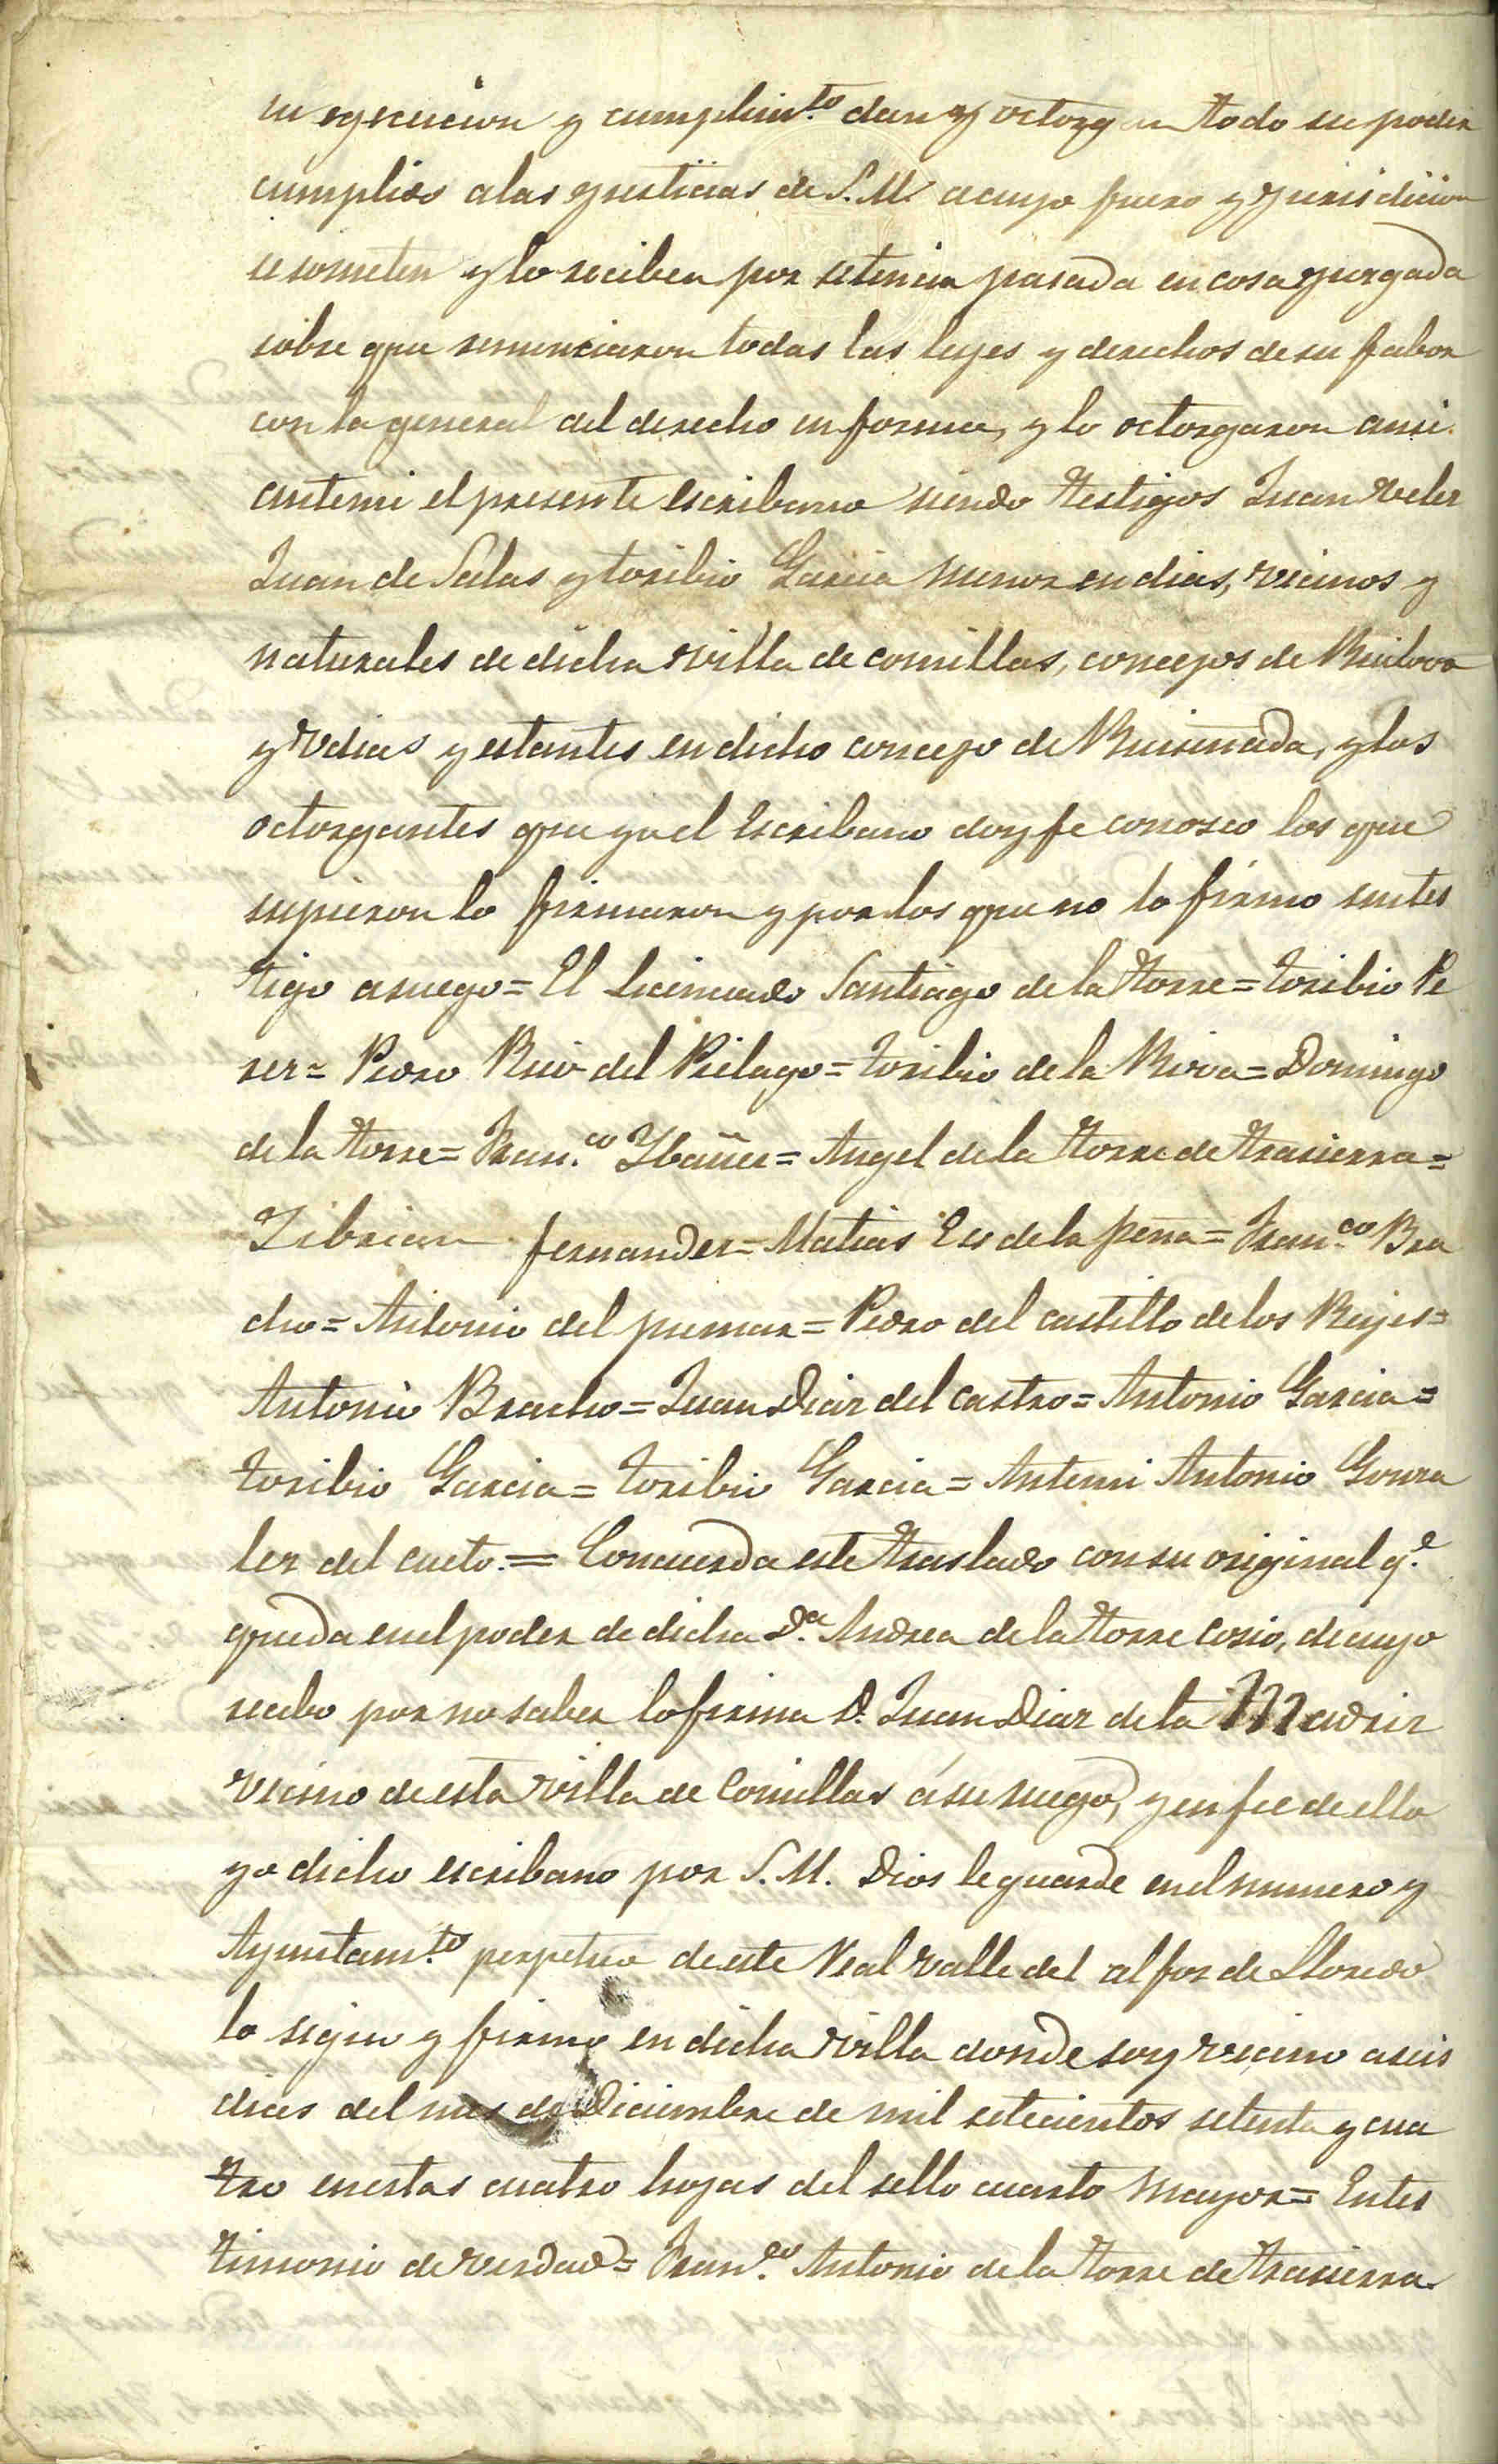 su egecucion y cumplim.to dan y octorgan todo su poder
cumplido a las gusticias de S.M. a cuyo fuero y gurisdicion
se someten y lo reciben por setencia pasada en cosa gurgada
sobre que renunciaron todas las leyes y derechos de su fabor
con la general del derecho en forma, y lo octorgaron ansi
antemi el presente Escribano siendo testigos Juan veler
Juan de Salas y toribio Garcia menor en dias, vecinos y
naturales de dicha villa de comillas, concegos de Ruiloba
y Vdias y estantes en dicho concego de Ruiseñada, y los
octorgantes que yo el Escribano doy fe conosco los que
supieron lo firmaron y por los que no lo firmo un tes
tigo a ruego = El Licenciado Santiago de la Torre = toribio Pe
rer = Pedro Ruiz del Pielago = toribio de la Riva = Domingo
de la Torre = Fran.co Ybañer = Angel de la Torre de Trasierra =
Zibrian fernander = Matias Es de la pena = Fran.co Bra
cho = Antonio del pumar = Pedro del castillo de los Reyes =
Antonio Bracho = Juan Diar del castro = Antonio Garcia =
toribio Garcia = toribio Garcia = Antemi Antonio Gonra
ler del cueto. = Concuerda este traslado con su original q.e
queda en el poder de dicha D.a Andrea de la Torre Cosio, de cuyo
recibo por no saber lo firma D. Juan Diar de la Madrir
vecino de esta villa de Comillas á su ruego, y en fee de ello
yo dicho escribano por S.M. Dios le guarde en el numero y
Ayuntam.to perpetuo de este Real valle del alfor de Lloredo
lo signo y firmo en dicha villa donde soy vecino a seis
dias del mes de Diciembre de mil setecientos setenta y cua
tro en estas cuatro hojas del sello cuarto mayor = En tes
timonio de verdad = Fran.co Antonio de la Torre de Trasierra.